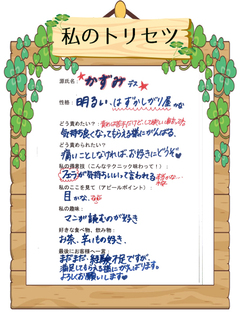 私のトリセツ
源氏名：★かすみデス★
性格：明るい、はずかしがり屋
どう責めたい？：
気持ち良くなってもらえる様にがんばる。
どう責められたい？：
痛いことしなければ、お好きにどうぞ♥
私の得意技（こんなテクニック味わって！）：
フェラが気持ちいいって言われる
私のここを見て（アピールポイント）：
目かな、
私の趣味：
マンガ読むのが好き
好きな食べ物、飲み物：
お茶、辛いもの好き、
最後にお客様へ一言：
まだまだ、経験不足ですが、
満足してもらえる様にがんばります。
よろしくお願いします♥